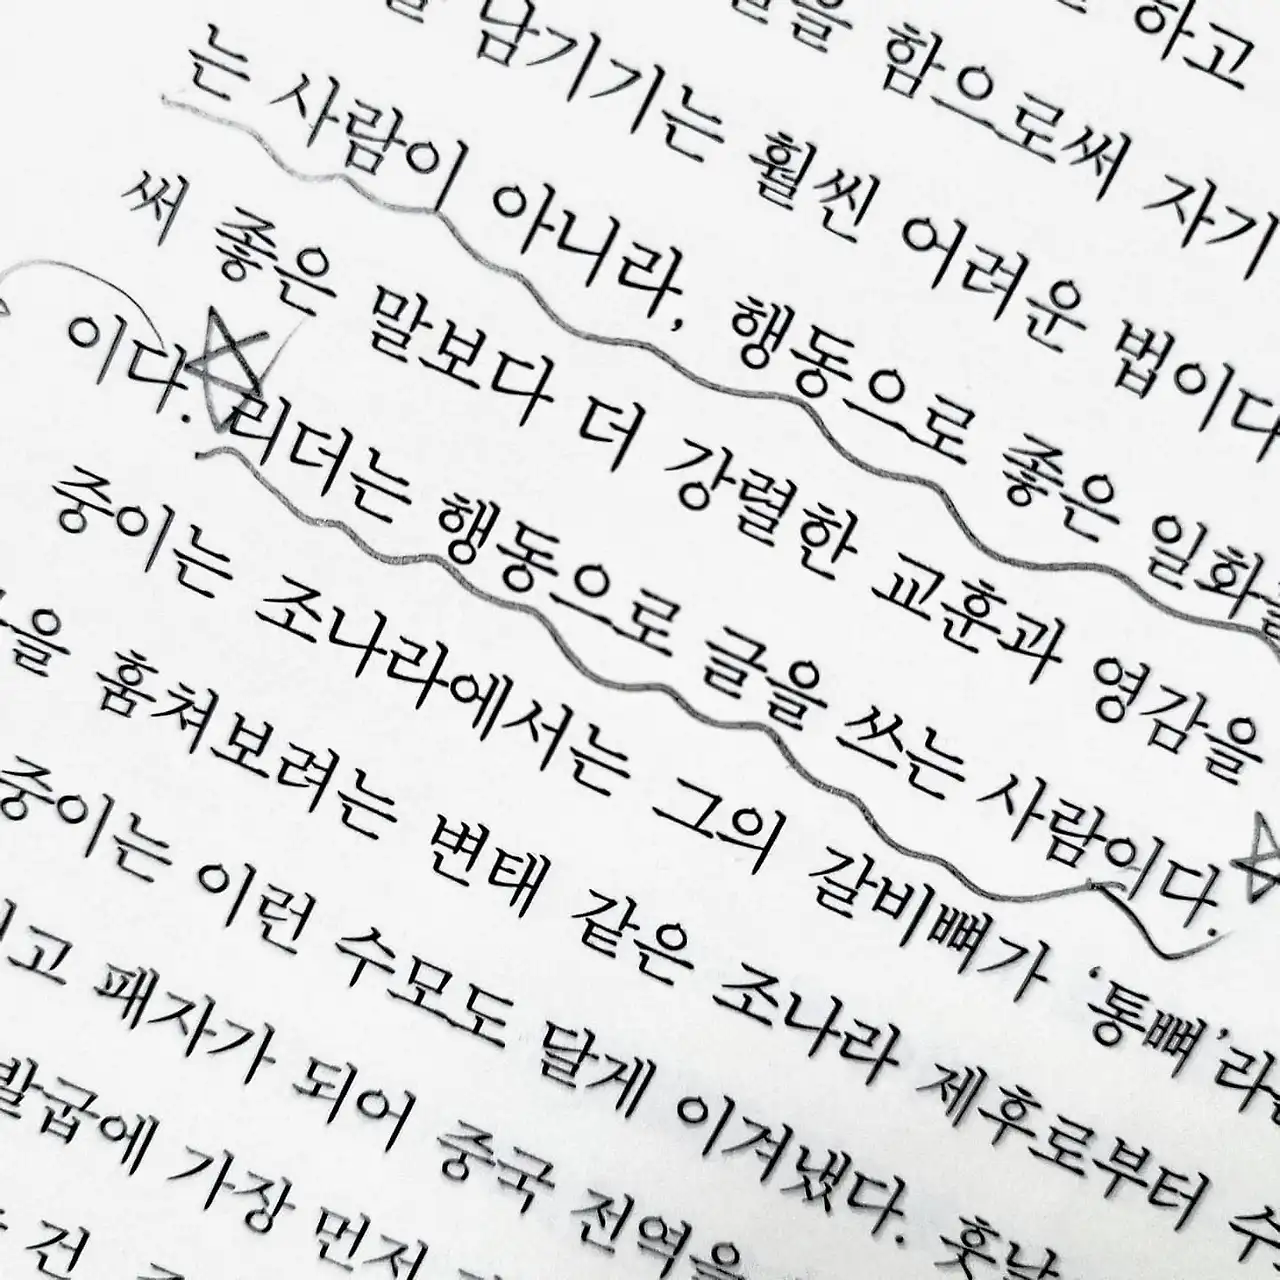 하고
을 함으로써 자기
남기기는 훨씬 어려운 법이다
는 사람이 아니라, 행동으로 좋은 일화를
써 좋은 말보다 더 강렬한 교훈과 영감을
이다. 리더는 행동으로 글을 쓰는 사람이다.
중이는 조나라에서는 그의 갈비뼈가 ‘통뼈’라는
을 훔쳐보려는 변태 같은 조나라 제후로부터 수
중이는 이런 수모도 달게 이겨냈다. 훗날
고 패자가 되어 중국 전역을
발굽에 가장 먼저
건